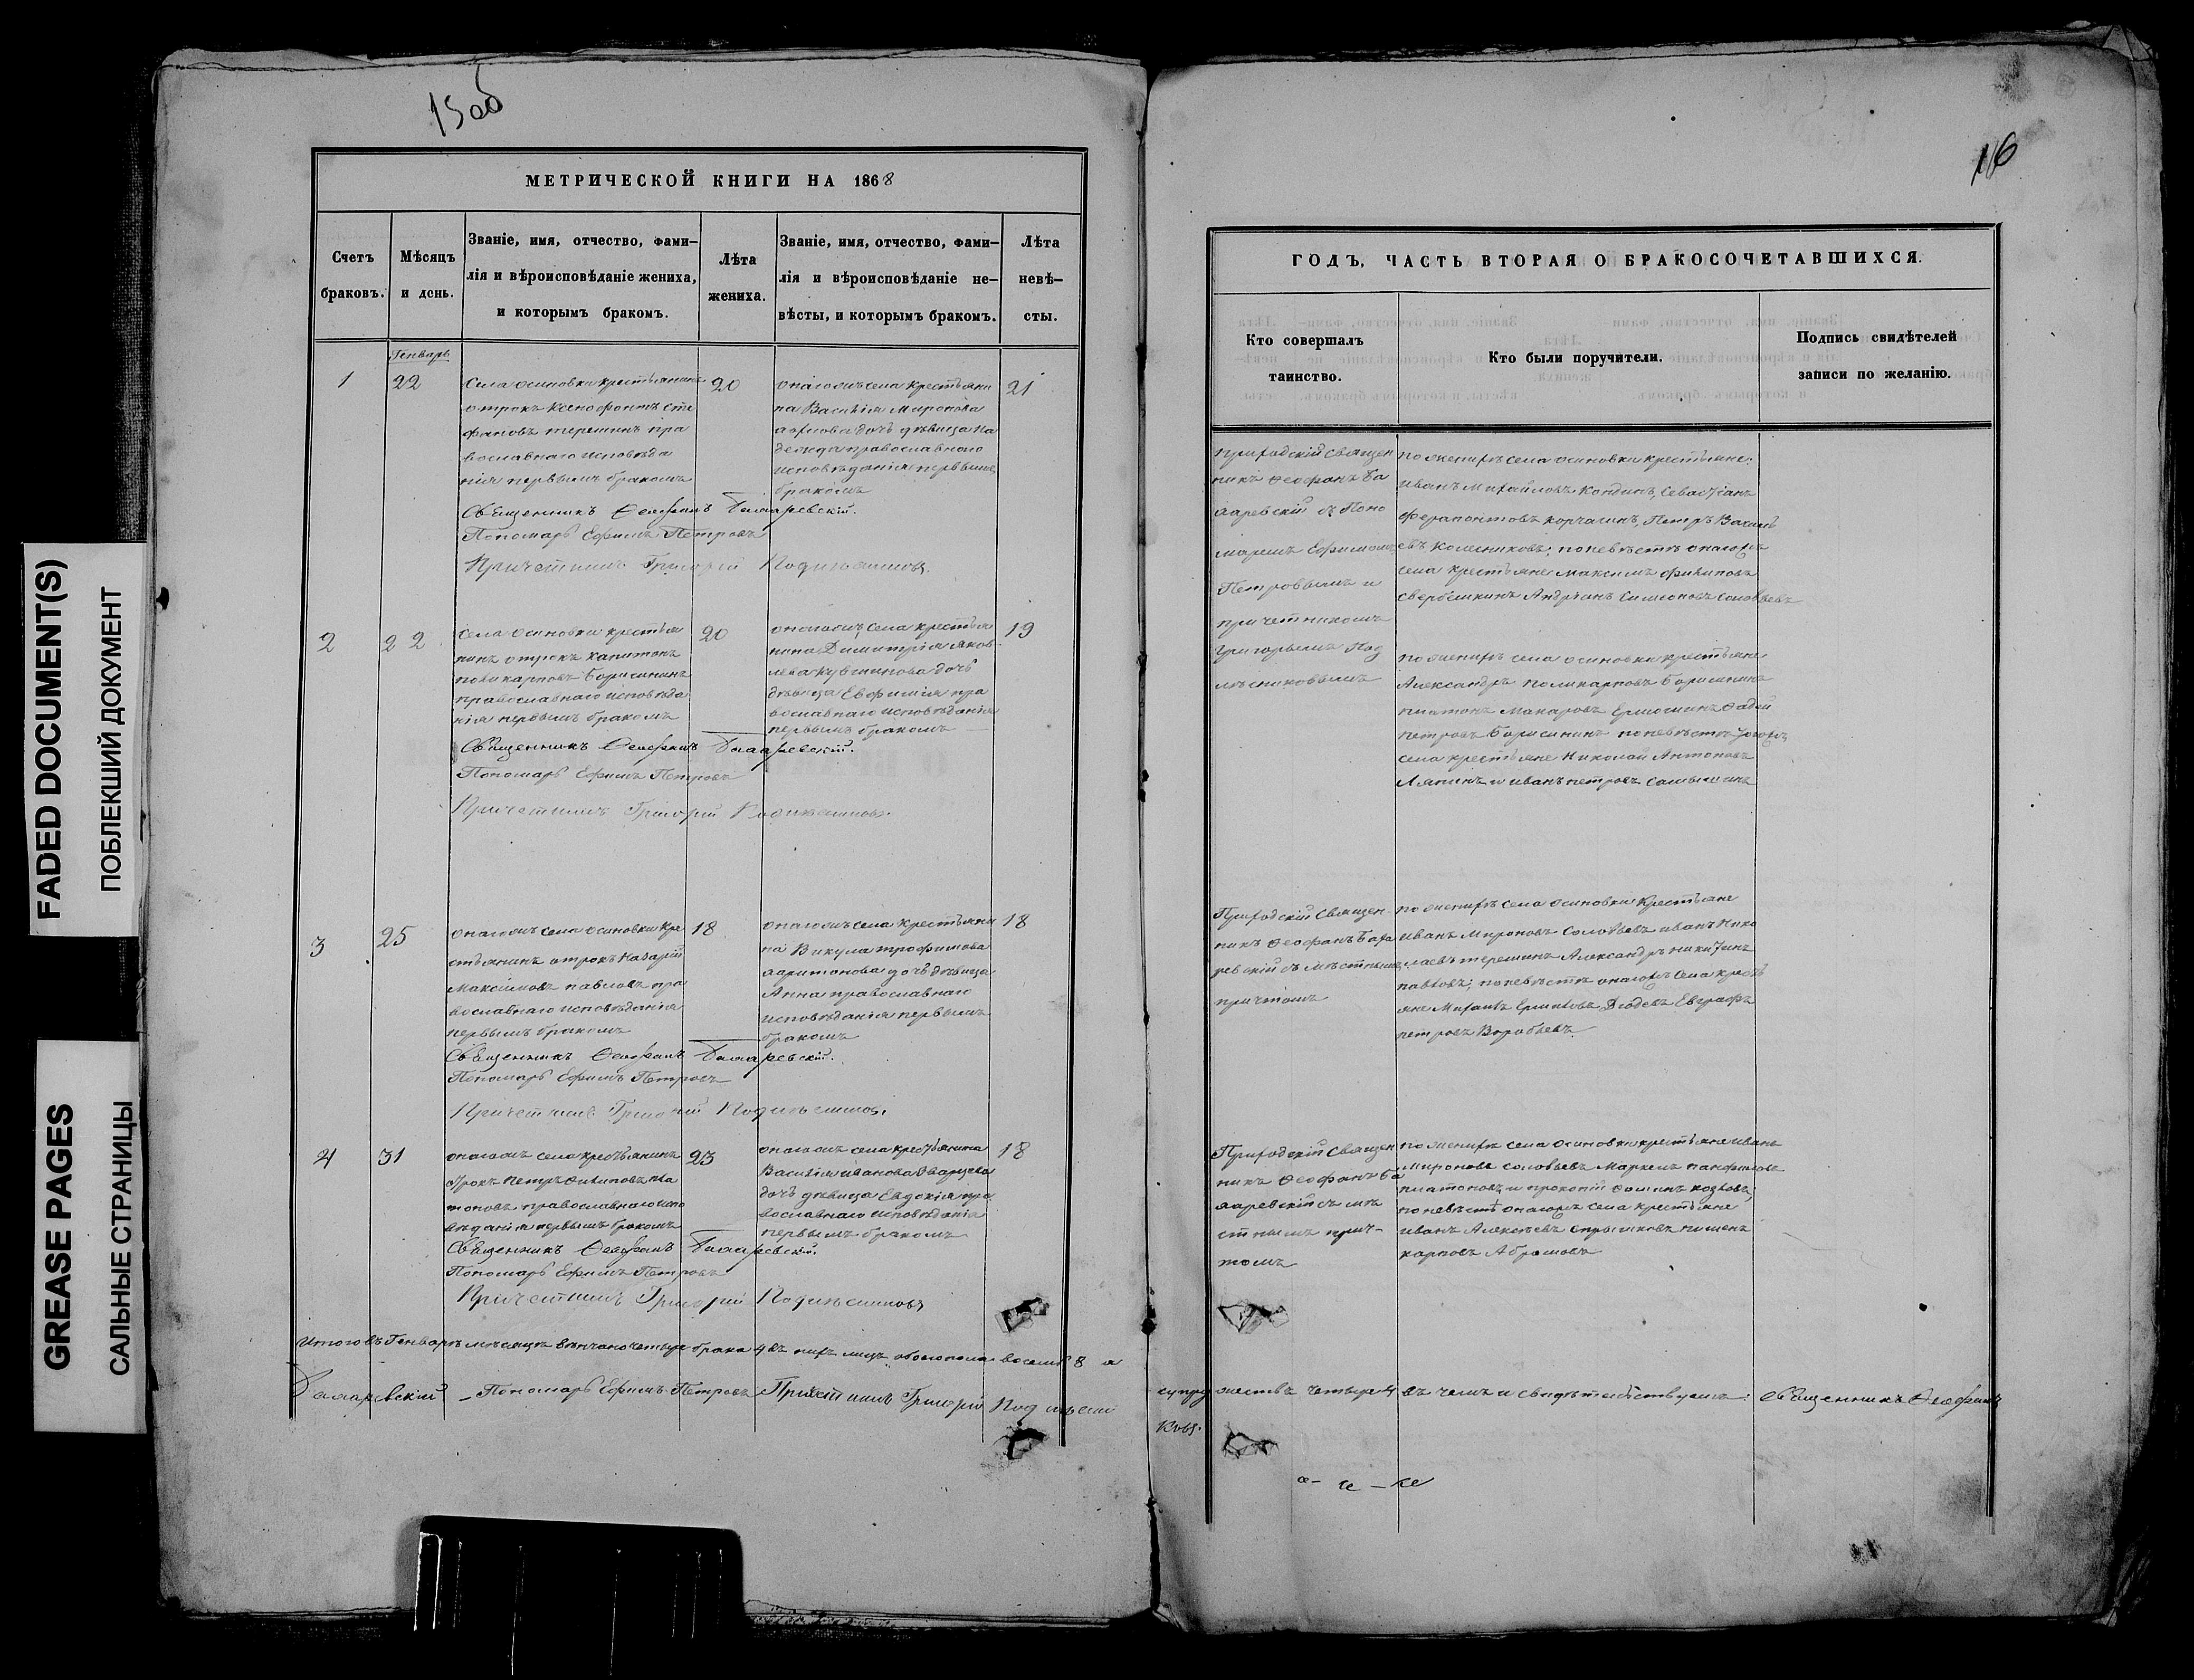 FADED DOCUMENT(S)
ПОБЛЕКШИЙ ДОКУМЕНТ
GREASE PAGES
САЛЬНЫЕ СТРАНИЦЫ
15об
МЕТРИЧЕСКОЙ КНИГИ НА 1868
Счетъ браковъ.
Мѣсяцъ и день.
Званіе, имя, отчество, фами-
лія и вѣроисповѣданіе жениха,
и которымъ бракомъ.
Лѣта жениха.
Званіе, имя, отчество, фами-
лія и вѣроисповѣданіе не-
вѣсты, и которымъ бракомъ.
Лѣта невѣ-
сты.
Генварь
1
22
села осиновки крестьянинъ
отрокъ Ксенофонтъ Сте
фановъ терешинъ пра
вославнаго исповѣда
нія первымъ бракомъ
20
онагожъ села крестьяни
на Василія Миронова
дочь дѣвица На
дежда православнаго
исповѣданія первымъ
бракомъ
21
Священникъ Ѳеофанъ
Пономарь Ефимъ Петровъ
Причетникъ Григорій
2
22
села осиновки крестья
нинъ отрокъ капитонъ
поликарповъ Борисинъ
православнаго исповѣда
нія первымъ бракомъ
20
онагожъ села крестья
нина Димитрія яков
лева дочь
дѣвица Евфимія пра
вославнаго исповѣданія
первымъ бракомъ
19
Священникъ Ѳеофанъ
Пономарь Ефимъ Петровъ
Причетникъ Григорій
3
25
онагожъ села осиновки кре
стьянинъ отрокъ Назарій
Максимовъ павловъ пра
вославнаго исповѣданія
первымъ бракомъ
18
онагожъ села крестьяни
на Викула трофимова
харитонова дочь дѣвица
Анна православнаго
исповѣданія первымъ
бракомъ
18
Священникъ Ѳеофанъ
Пономарь Ефимъ Петровъ
Причетникъ Григорій
4
31
онагожъ села крестьянинъ
отрокъ Петръ Филиповъ пла
тоновъ православнаго испо
вѣданія первымъ бракомъ
23
онагожъ села крестьянина
Василія иванова
дочь дѣвица Евдокія пра
вославнаго исповѣданія
первымъ бракомъ
18
Священникъ Ѳеофанъ
Пономарь Ефимъ Петровъ
Причетникъ Григорій
Итого въ Генварѣ мѣсяцѣ вѣнчано четыре брака 4 въ нихъ лицъ обоего пола восемь 8 а
Пономарь Ефимъ Петровъ Причетникъ Григорій
16
ГОДЪ, ЧАСТЬ ВТОРАЯ О БРАКОСОЧЕТАВШИХСЯ.
Кто совершалъ
таинство.
Кто были поручители.
Подпись свидѣтелей
записи по желанію.
приходскій священ
никъ Ѳеофанъ
съ Поно
маремъ Ефимомъ
Петровымъ и
причетникомъ
Григорьемъ Под
по женихѣ села осиновки крестьяне:
иванъ Михайловъ Кондинъ, Севастіанъ
ферапонтовъ корчагинъ, Петръ
Колесниковъ; по невѣстѣ онагожъ
села крестьяне Максимъ филиповъ
Андріанъ Симеоновъ Соловьевъ
по женихѣ села осиновки крестьяне
Александръ поликарповъ Борисинъ
платонъ Макаровъ Ермошинъ Фадей
петровъ Борисинъ по невѣстѣ
села крестьяне Николай Антоновъ
Ляпинъ и иванъ петровъ
Приходскій Священ
никъ Ѳеофанъ
съ мѣстнымъ
причтомъ
по женихѣ села осиновки Крестьяне
иванъ Мироновъ Соловьевъ иванъ Нико
лаевъ терешинъ Александръ никитинъ
павловъ; по невѣстѣ онагожъ села кресть
яне Михаилъ Ермиловъ Евграфъ
петровъ Воробьевъ.
Приходскій Священ
никъ Ѳеофанъ
съ мѣ
стнымъ прич-
томъ
по женихѣ села осиновки крестьяне иванъ
Мироновъ соловьевъ Маркелъ панфиловъ
платоновъ и прокопій Фоминъ козловъ;
по невѣстѣ онагожъ села крестьяне
иванъ Алексѣевъ пименъ
карповъ Абрамовъ
супружествъ четыре 4 въ чемъ и свидѣтельствуемъ: Священникъ Ѳеофанъ